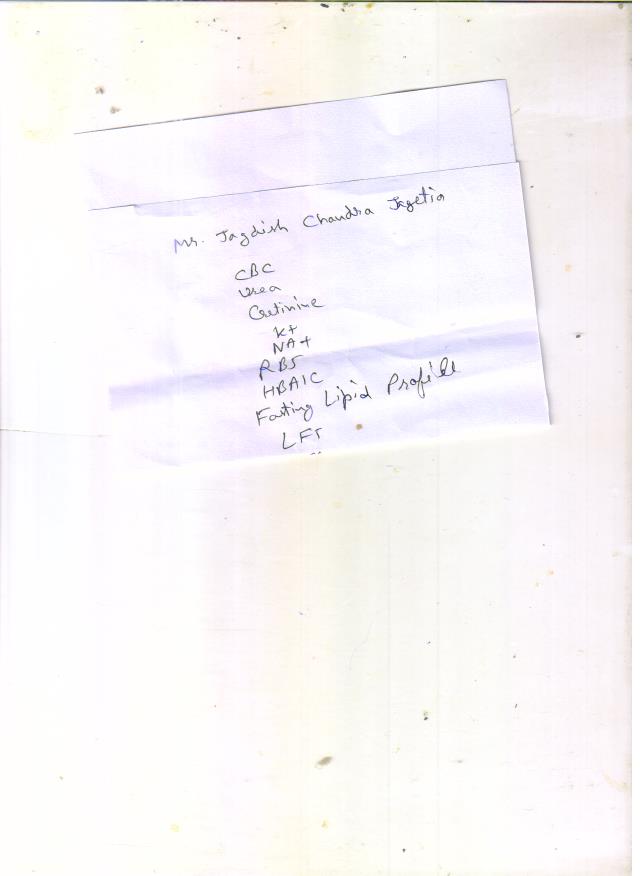 Mr. Jagdish Chandra Jagetia
CBC
Urea
Cretinine
K+
NA+
RBS
HBA1C
Fasting Lipid Profile
LFT